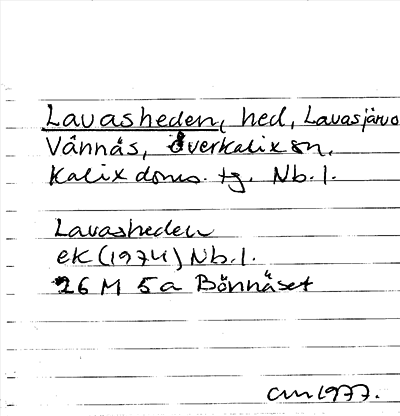 Lavasheden, hed, Lavasjärvo
Vännäs, Överkalix sn,
Kalix doms. tg. Nb.l.
Lavasheden
ek (1974) Nb.l.
26 M 5a Bönnäset
cm 1977.